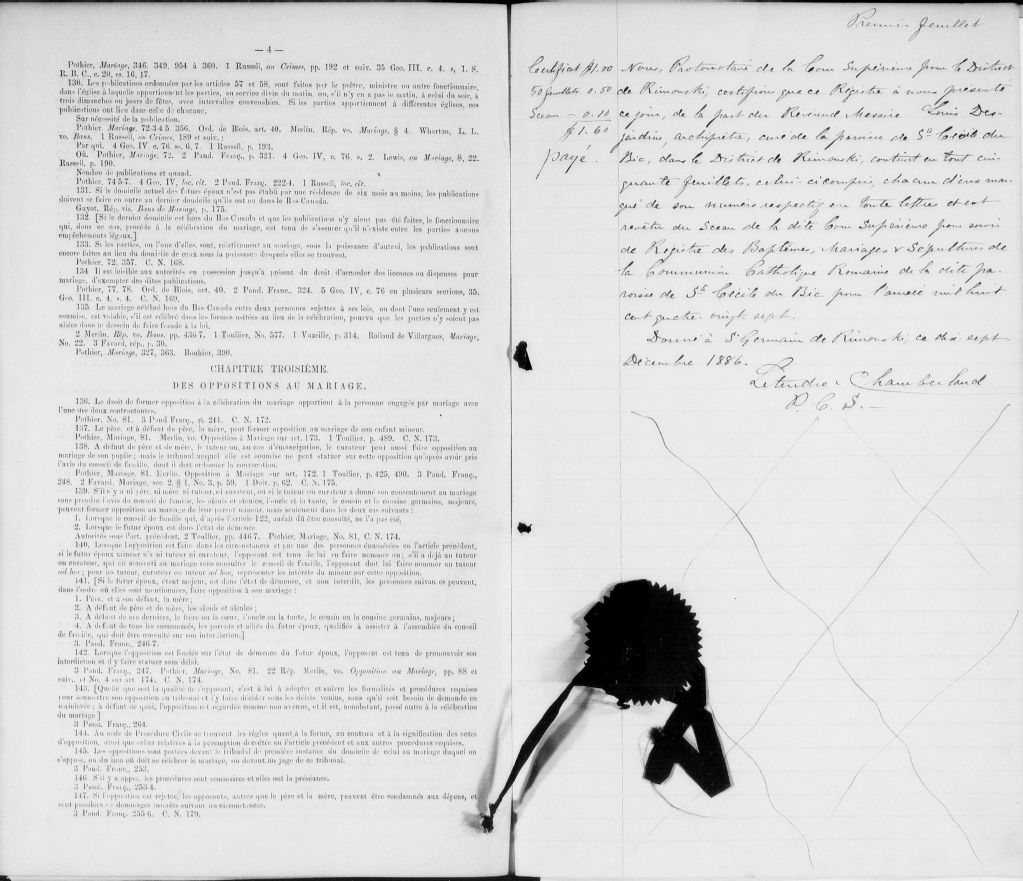 — 4 —
Pothier, Mariage, 346, 349, 954 à 360. 1 Russell, on Crimes, pp. 192 et suiv. 35 Geo. III, c. 4. s, 1. S.
R. B. C., c. 20, ss. 16, 17.
130. Les publications ordonnées par les articles 57 et 58, sont faites par le prêtre, ministre ou autre fonctionnaire,
dans l'église à laquelle appartiennent les parties, au service divin du matin, ou, s'il n'y en a pas le matin, à celui du soir, à
trois dimanches ou jours de fêtes, avec intervalles convenables. Si les parties appartiennent à différentes églises, ces
publications ont lieu dans celle de chacune.
Sur nécessité de la publication.
Pothier, Mariage, 72-3-4 5, 356. Ord. de Blois, art. 40. Merlin, Rép. vo. Mariage, § 4. Wharton, L. L.
vo. Bans. 1 Russell, on Crimes, 189 et suiv. :
Par qui. 4 Geo. IV. c. 76, ss. 6, 7. 1 Russell, p. 193.
Où. Pothier, Mariage, 72. 2 Pand. Franç., p. 321. 4 Geo. IV, c. 76, s. 2. Lewis, on Mariage, 8, 22.
Russell, p. 190.
Nombre de publications et quand.
Pothier, 74 5-7. 4 Geo. IV, loc. cit. 2 Pand. Franç., 222-4. 1 Russell, loc. cit.
131. Si le domicile actuel des futurs époux n'est pas établi par une résidence de six mois au moins, les publications
doivent se faire en outre au dernier domicile qu'ils ont eu dans le Bas Canada.
Guyot, Rép. vis. Bans de Mariage, p. 175.
132. [Si le dernier domicile est hors du Bas Canada et que les publications n'y aient pas été faites, le fonctionnaire
qui, dans ce cas, procède à la célébration du mariage, est tenu de s'assurer qu'il n'existe entre les parties aucuns
empêchements légaux.]
133. Si les parties, ou l'une d'elles, sont, relativement au mariage, sous la puissance d'autrui, les publications sont
encore faites au lieu du domicile de ceux sous la puissance desquels elles se trouvent.
Pothier, 72, 357. C. N. 168.
134 Il est loisible aux autorités en possession jusqu'à présent du droit d'accorder des licences ou dispenses pour
mariage, d'exempter des dites publications.
Pothier, 77, 78. Ord. de Blois, art. 40. 2 Pand. Franc., 324. 5 Geo. IV, c. 76 en plusieurs sections, 35,
Geo. III. c. 4. s. 4. C. N. 169.
135. Le mariage célébré hors du Bas Canada entre deux personnes sujettes à ses lois, ou dont l'une seulement y est
soumise, est valable, s'il est célébré dans les formes usitées au lieu de la célébration, pourvu que les parties n'y soient pas
allées dans le dessein de faire fraude à la loi.
2 Merlin, Rép. vo. Bans, pp. 436 7. 1 Toullier, No. 577. 1 Vazeille, p. 314. Rolland de Villargues, Mariage,
No. 22. 3 Favard, rép., p. 30.
Pothier, Mariage, 327, 363. Bouhier, 390.
CHAPITRE TROISIÈME.
DES OPPOSITIONS AU MARIAGE.
136. Le droit de former opposition à la célébration du mariage appartient à la personne engagée par mariage avec
l'une des deux contractantes.
Pothier, No. 81. 3 Pand Franç., p. 241. C. N. 172.
137. Le père, et à défaut du père, la mère, peut former opposition au mariage de son enfant mineur.
Pothier, Mariage, 81. Merlin, vo. Opposition à Mariage sur art. 173. 1 Toullier, p. 489. C. N. 173.
138. A défaut de père et de mère, le tuteur ou, au cas d'émancipation, le curateur peut aussi faire opposition au
mariage de son pupile ; mais le tribunal auquel elle est soumise ne peut statuer sur cette opposition qu'après avoir pris
l'avis du conseil de famille, dont il doit ordonner la convocation.
Pothier, Mariage, 81. Merlin, Opposition à Mariage sur art. 172. 1 Toullier, p. 425, 490. 3 Pand. Franç.,
248. 2 Favard, Mariage, sec. 2, § 1, No. 3, p. 59. 1 Delv. p. 62. C. N. 175.
139. S'il n'y a ni père, ni mère, ni tuteur, ni curateur, ou si le tuteur ou curateur a donné son consentement au mariage
sans prendre l'avis du conseil de famille, les aïeuls et aïeules, l'oncle et la tante, le cousin et la cousine germains, majeurs,
peuvent former opposition au mariage de leur parent mineur, mais seulement dans les deux cas suivants :
1. Lorsque le conseil de famille qui, d'après l'article 122, aurait dû être consulté, ne l'a pas été,
2. Lorsque le futur époux est dans l'état de démence.
Autorités sous l'art. précédent. 2 Toullier, pp. 446 7. Pothier, Mariage, No. 81, C. N. 174.
140. Lorsque l'opposition est faite dans les circonstances et par une des personnes énumérées en l'article précédent,
si le futur époux mineur n'a ni tuteur ni curateur, l'opposant est tenu de lui en faire nommer un ; s'il a déjà un tuteur
ou curateur, qui ait consenti au mariage sans consulter le conseil de famille, l'opposant doit lui faire nommer un tuteur
ad hoc ; pour les tuteur, curateur ou tuteur ad hoc, représenter les intérêts du mineur sur cette opposition.
141. [Si le futur époux, étant majeur, est dans l'état de démence, et non interdit, les personnes suivantes peuvent,
dans l'ordre où elles sont mentionnées, faire opposition à son mariage :
1. Père, et à son défaut, la mère ;
2. A défaut de père et de mère, les aïeuls et aïeules ;
3. A défaut de ces derniers, le frère ou la sœur, l'oncle ou la tante, le cousin ou la cousine germains, majeurs ;
4. A défaut de tous les susnommés, les parents et alliés du futur époux, qualifiés à assister à l'assemblée du conseil
de famille, qui doit être consulté sur son interdiction.]
3. Pand. Franc., 246-7.
142. Lorsque l'opposition est fondée sur l'état de démence du futur époux, l'opposant est tenu de promouvoir son
interdiction et d'y faire statuer sans délai.
3 Pand. Franç., 247. Pothier, Mariage, No. 81. 22 Rép. Merlin, vo. Opposition au Mariage, pp. 88 et
suiv., et No. 4 sur art. 174. C. N. 174.
143. [Quelle que soit la qualité de l'opposant, c'est à lui à adopter et suivre les formalités et procédures requises
pour soumettre son opposition au tribunal et l'y faire décider sous les délais voulus, sans qu'il soit besoin de demande en
mainlevée ; à défaut de quoi, l'opposition est regardée comme non avenue, et il est, nonobstant, passé outre à la célébration
du mariage.]
3 Pand. Franç., 264.
144. Au code de Procédure Civile se trouvent les règles quant à la forme, au contenu et à la signification des actes
d'opposition, ainsi que celles relatives à la péremption décrétée en l'article précédent et aux autres procédures requises.
145. Les oppositions sont portées devant le tribunal de première instance du domicile de celui au mariage duquel on
s'oppose, ou du lieu où doit se célébrer le mariage, ou devant un juge de ce tribunal.
3 Pand. Franc., 253.
146 S'il y a appel, les procédures sont sommaires et elles ont la préséance.
3 Pand. Franç., 253-4.
147. Si l'opposition est rejetée, les opposants, autres que le père et la mère, peuvent être condamnés aux dépens, et
sont passibles de dommages intérêts suivant les circonstances.
3 Pand. Franç. 255-6. C. N. 179.
Premier feuillet
Certificat $1.00
50 feuillets 0.50
Sceau — 0.10
$1.60
payé.
Nous, Protonotaire de la Cour Supérieure pour le District
de Rimouski, certifions que ce Régistre à nous présenté
ce jour, de la part du Révérend Messire Louis Des-
jardins, archiprêtre, curé de la paroisse de Ste Cécile du
Bic, dans le District de Rimouski, contient en tout cin-
quante feuillets, celui-ci compris, chacun d'eux mar-
qué de son numéro respectif en toute lettres et est
revêtu du Sceau de la dite Cour Supérieure pour servir
de Régistre des Baptêmes, Mariages & Sépultures de
la Communion Catholique Romaine de la dite pa-
roisse de Ste Cécile du Bic pour l'année mil huit
cent quatre-vingt sept.
Donné à St Germain de Rimouski, ce dix sept
Décembre 1886.
Letendre & Chamberland
P. C. S. —